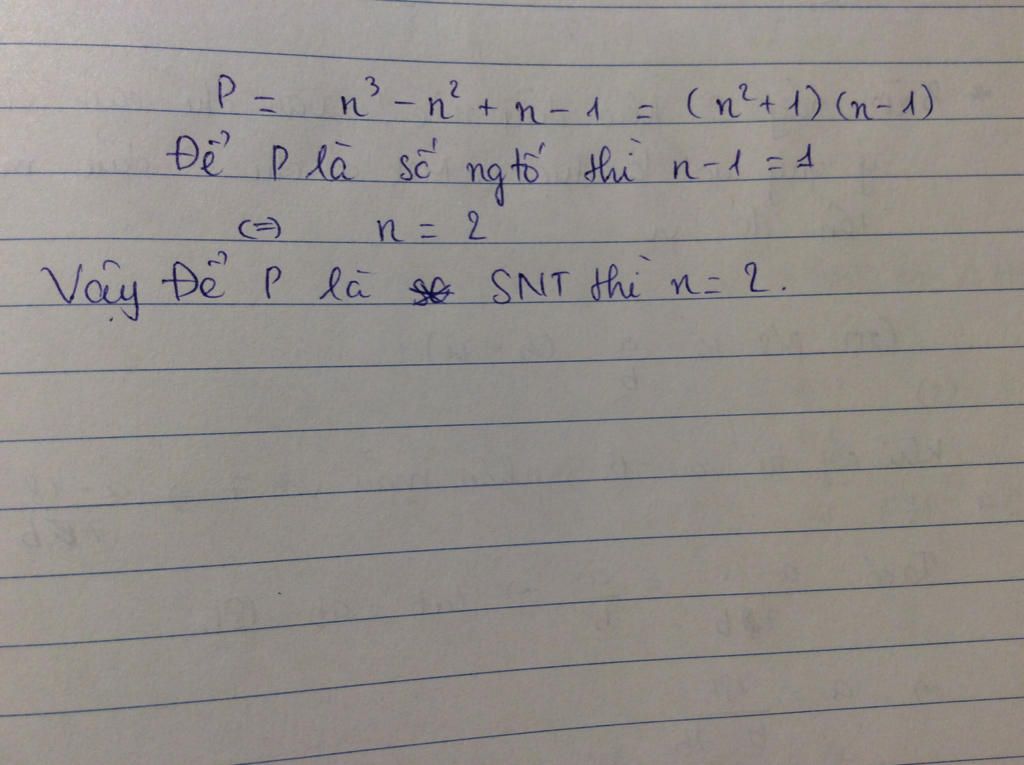 P = n³ - n² + n - 1 = (n² + 1)(n - 1)
Để P là số ngtố thì n - 1 = 1
(=) n = 2
Vậy Để P là SNT thì n = 2.